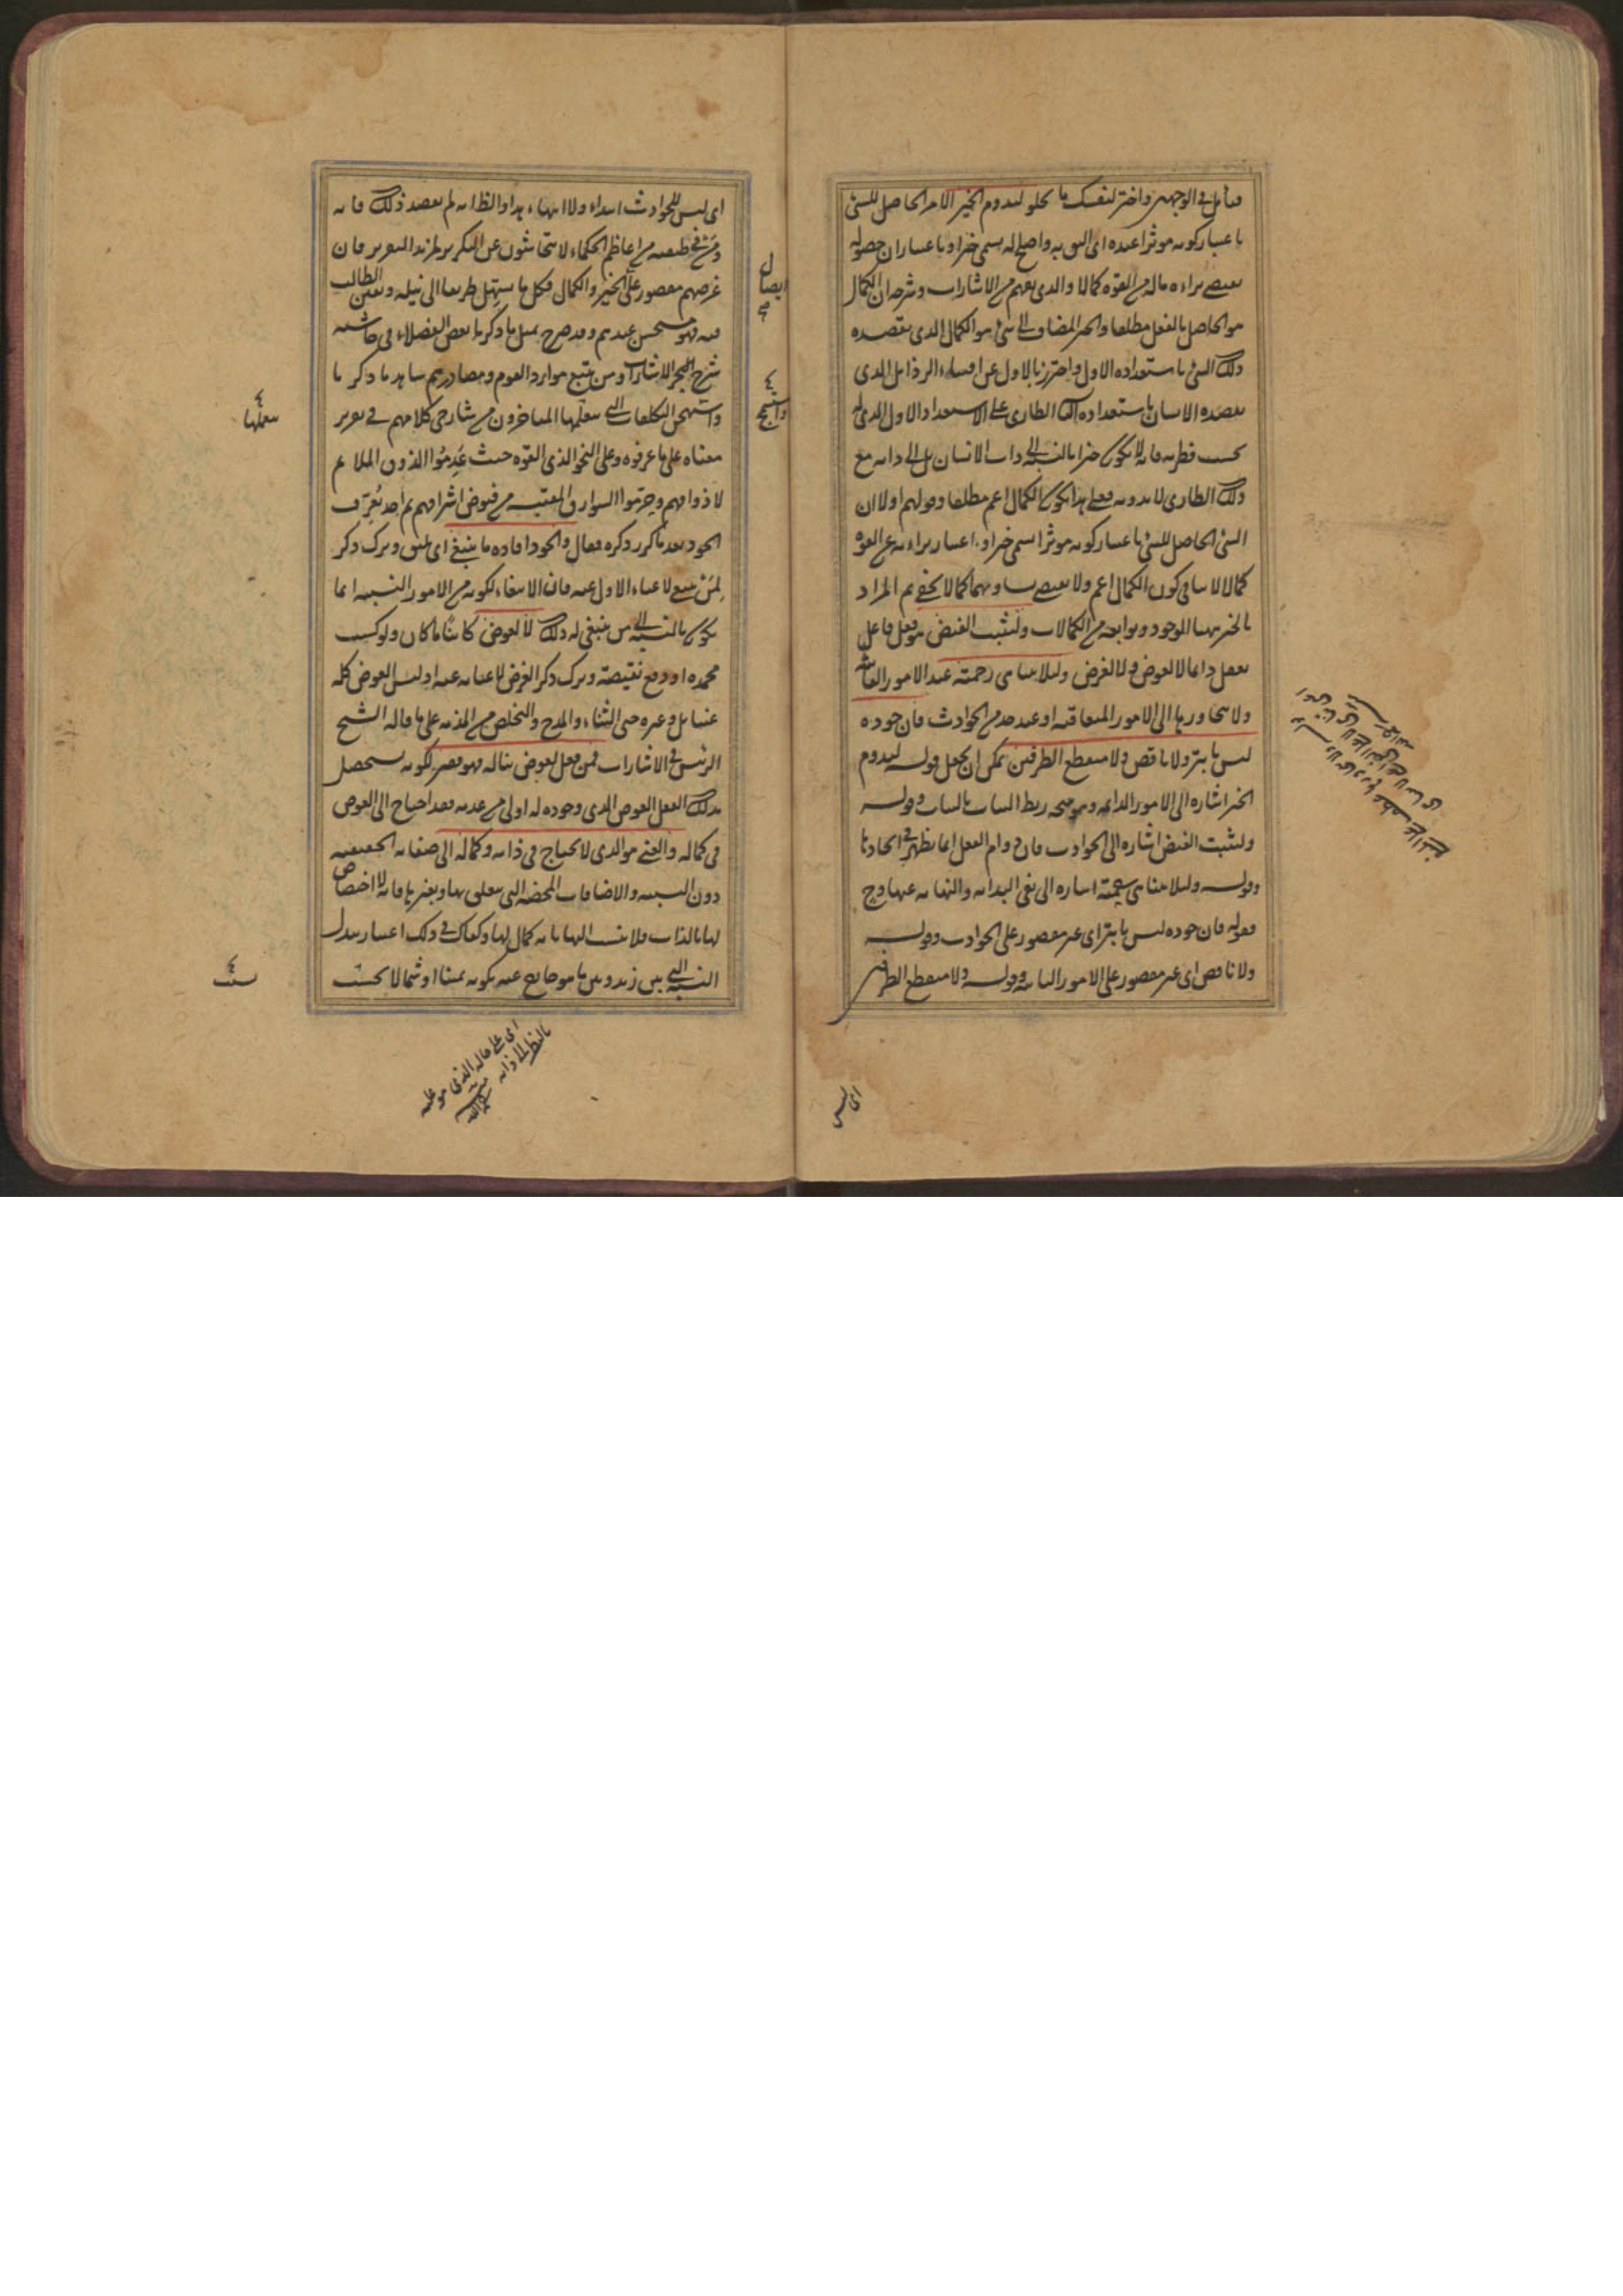 فتأمل في الوجهين واختر لنفسك ما يحلو ليدوم الخير الامر الحاصل للشئ
باعتبار كونه موثرا عنده اى اليق به واصلح له يسمى خيرا وباعتبار ان حصوله
يقتضى براءة ماله من القوة كمالا والذى يفهم من الاشارات وشرحه ان الكمال
هو الحاصل بالفعل مطلقا والخير المضاف الى شئ هو الكمال الذى يقصده
ذلك الشئ باستعداده الاول واحترز بالاول عن اقتناء الرذايل الذى
يقصده الانسان باستعداده الطارى على الاستعداد الاول الذى له
بحسب فطرته فانه لا يكون خيرا بالنسبة الى ذات الانسان بل الى ذاته مع
ذلك الطارى لا بدونه فعلى هذا يكون الكمال اعم مطلقا وقولهم اولا ان
الشئ الحاصل للشئ باعتبار كونه موثرا اسمى خيرا وباعتبار براءته عن القوة
كمالا لا ينافى كون الكمال اعم ولا يقتضى تساويهما كما لا يخفى ثم المراد
بالخير ههنا الوجود وتوابعه من الكمالات وليثبت الفيض هو فعل فاعل
يفعل دائما لا لعوض ولا لغرض ولئلا يتناهى رحمته عند الامور
ولا يتجاوزها الى الامور المتعاقبة او عند حد من الحوادث فان جوده
ليس بابتر ولا ناقص ولا منقطع الطرفين يمكن ان يجعل قوله ليدوم
الخير اشارة الى الامور الدائمة وهو صحة ربط الثبات بالثبات وقوله
وليثبت الفيض اشارة الى الحوادث فان دوام الفعل انما يظهر في الحادثات
وقوله ولئلا يتناهى رحمته اشارة الى نفى البداية والنهاية عنها وح
فقوله فان جوده ليس بابتر اى غير مقصور على الحوادث وقوله
ولا ناقص اى غير مقصور على الامور الثابتة وقوله ولا منقطع الطرفين
اى ليس
اى ليس للحوادث ابتداء ولا انتهاء هذا والظاهر انه لم يقصد ذلك فانه
ومن في طبقته من اعاظم الحكماء لا يتحاشون عن التكرير لمزيد التقرير فان
غرضهم مقصور على الخير والكمال فكل ما يسهل طريقا الى نيله ويعين الطالب
فيه فهو مستحسن عندهم وقد صرح بمثل ما ذكرنا بعض الفضلاء في حاشية
شرح الاشارات ومن تتبع موارد القوم ومصادرهم شاهد ما ذكرنا
واستهجن التكلفات التى تعملها المتأخرون من شارحى كلامهم في تقرير
معناه على ما عرفوه وعلى النحو الذى الفوه حيث عدموا الذوق الملائم
لاذواقهم وحرموا البوارق المقتبسة من فيوض اشراقهم ثم اخذ يعرف
الجود بعد ما كرر ذكره فقال والجود افادة ما ينبغى اى يليق وترك ذكر
لمن ينبغى لاغناء الاول عنه فان الابتغاء لكونه من الامور النسبية انما
يكون بالنسبة الى من ينبغى له ذلك لا لعوض كائنا ما كان ولو كسب
محمدة او دفع نقيصة وترك ذكر الغرض لاغنائه عنه اذ ليس العوض كله
عينا بل وغيره حتى الثناء والمدح والتخلص من المذمة على ما قاله الشيخ
الرئيس في الاشارات فمن فعل لعوض يناله فهو فقير لكونه يستحصل
بذلك الفعل العوض الذى وجوده له اولى من عدمه فقد احتاج الى العوض
فى كماله والغنى هو الذى لا يحتاج فى ذاته وكماله الى صفاته الحقيقية
دون النسبية والاضافات المحضة التى يتعلق بها وبغيرها فانه لا اختصاص
لها بالذات فلا ينسب اليها بانه كمال لها وكفاك في ذلك اعتبار تبدل
النسبة التى بين زيد وبين ما هو خارج عنه بكونه يمينا او شمالا بحيث
ايصال
تعملها
اى على حاله الذى هو عليه
بالنظر الى ذاته